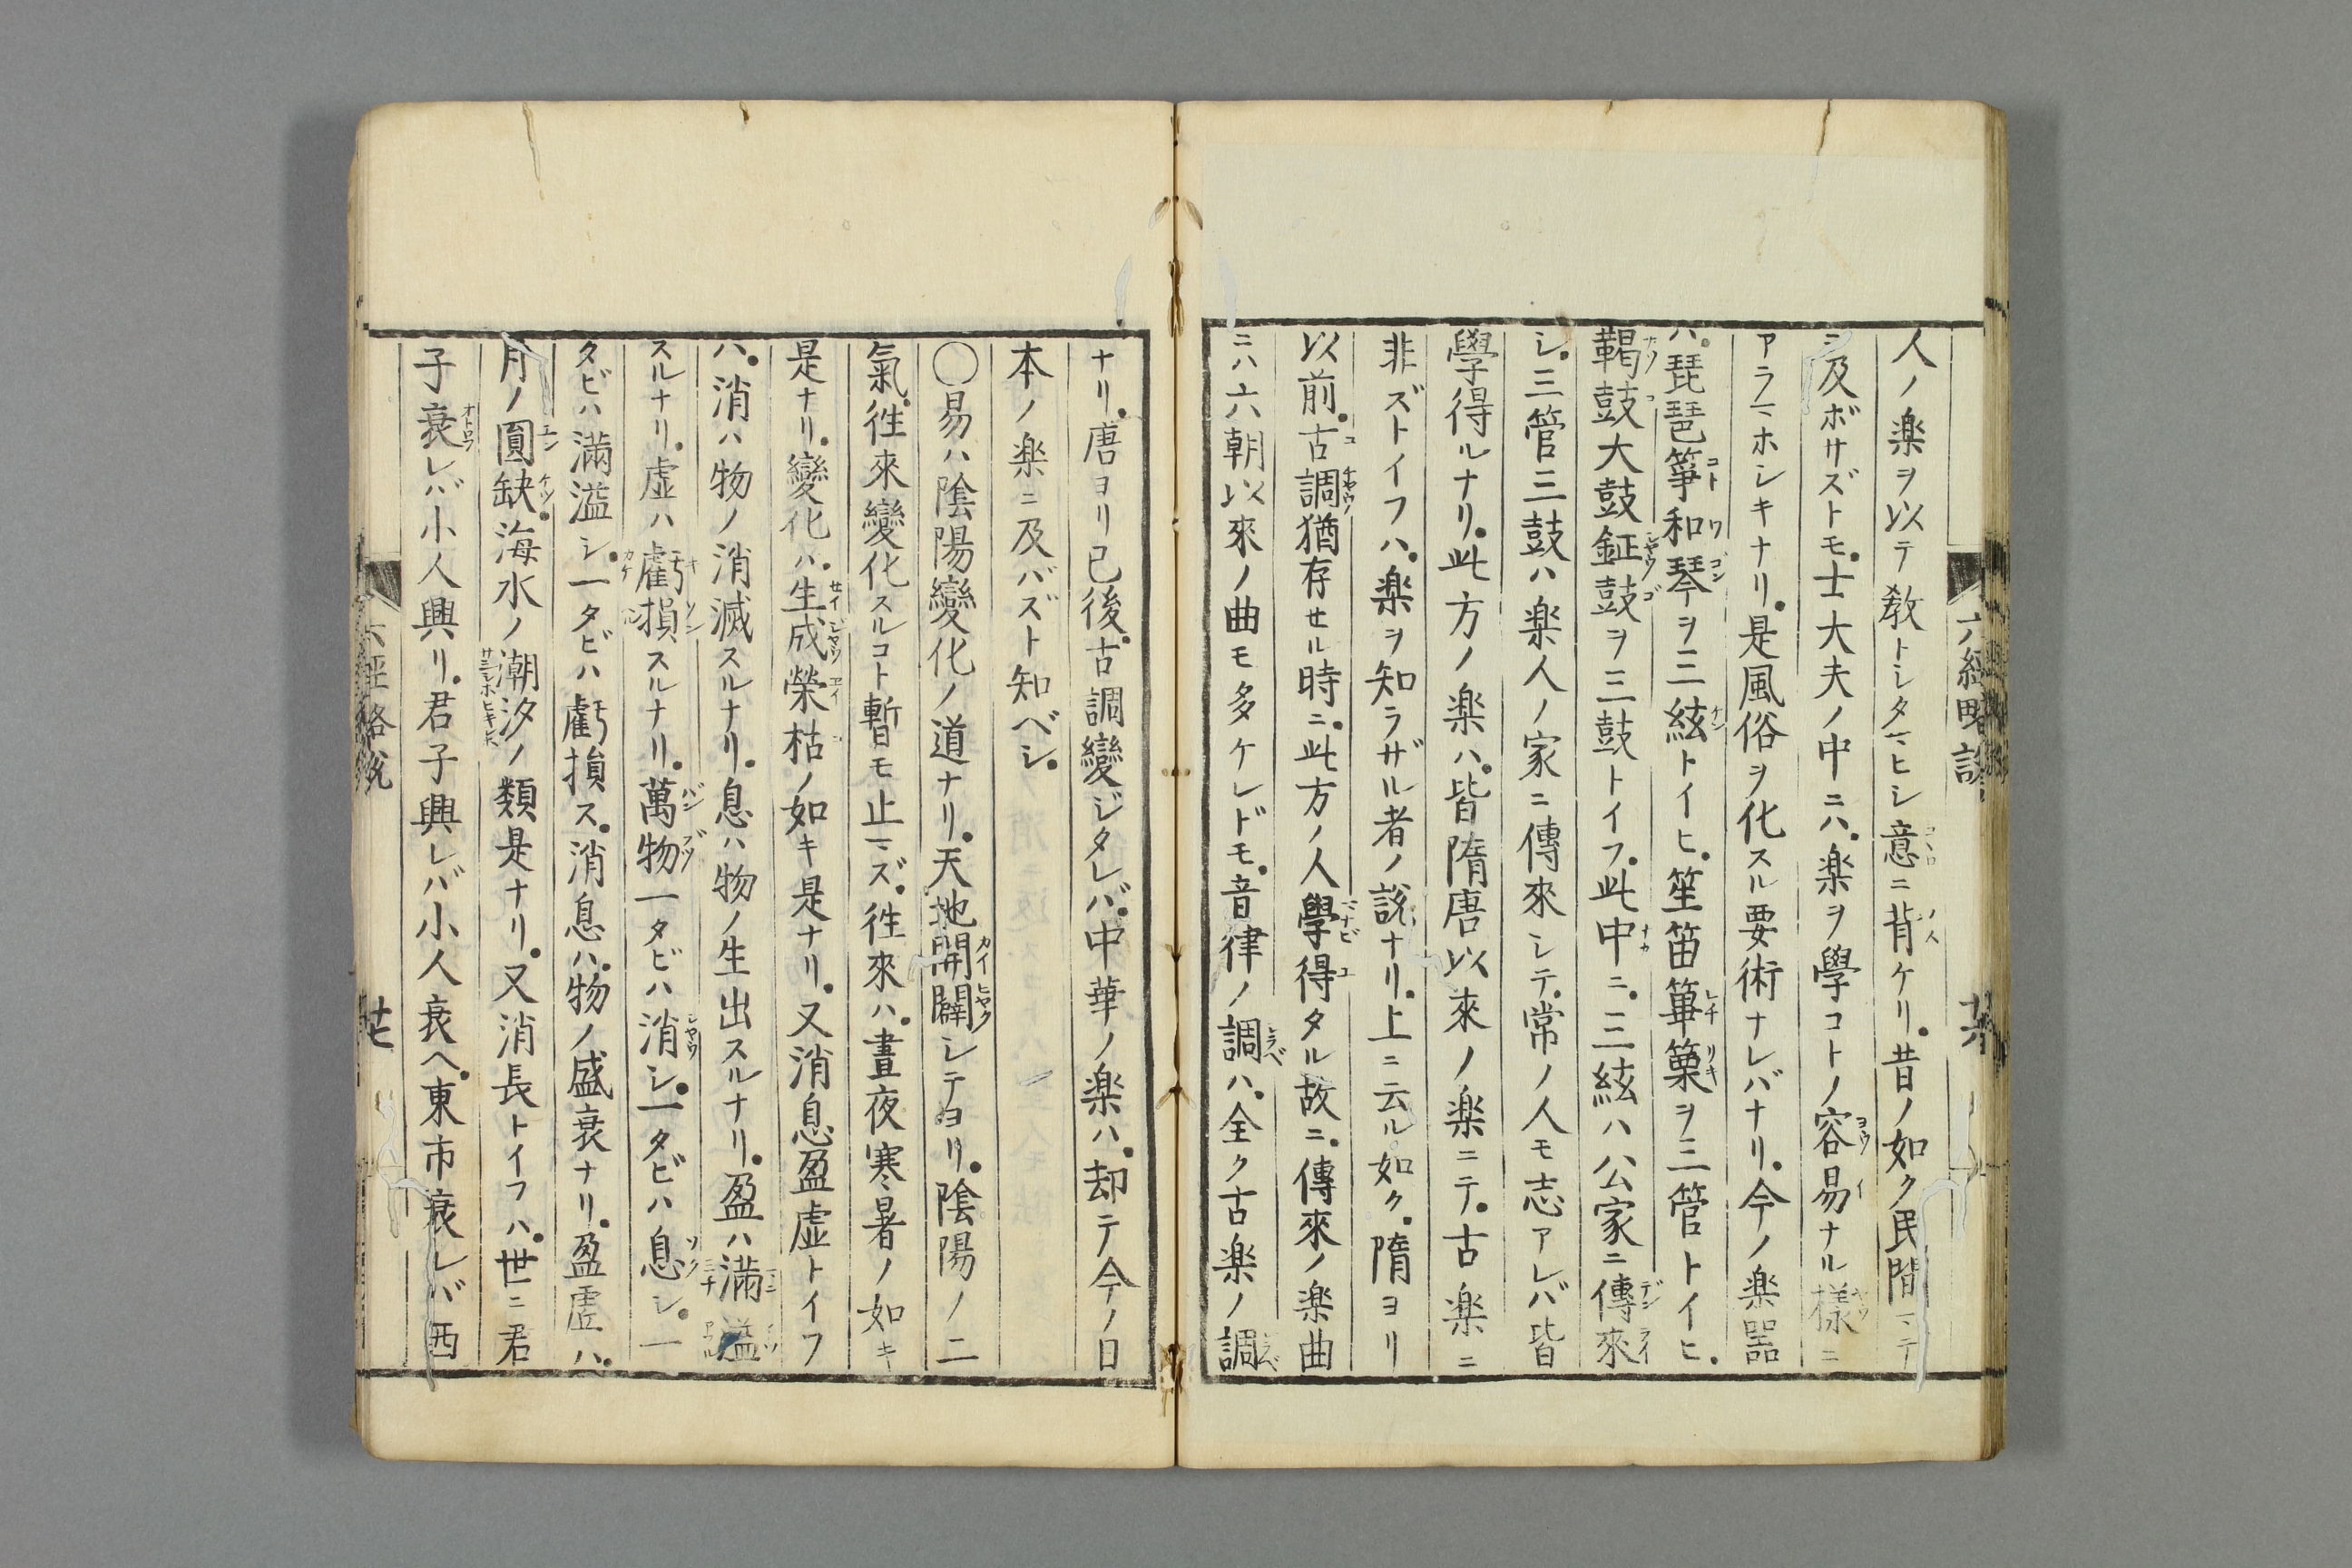 人ノ楽ヲ以テ教トシタマヒシ意ニ背ケリ。昔ノ如ク民間マデ
ニ及ボサズトモ。士大夫ノ中ニハ。楽ヲ學コトノ容易ナル樣ニ
アラマホシキナリ。是風俗ヲ化スル要術ナレバナリ。今ノ楽器
ハ。琵琶箏和琴ヲ三絃トイヒ。笙笛篳篥ヲ三管トイヒ。
鞨鼓大鼓鉦鼓ヲ三鼓トイフ。此中ニ。三絃ハ公家ニ傳來
シ。三管三鼓ハ楽人ノ家ニ傳來シテ。常ノ人モ志アレバ皆
學得ルナリ。此方ノ楽ハ。皆隋唐以來ノ楽ニテ。古楽ニ
非ズトイフハ。楽ヲ知ラザル者ノ説ナリ。上ニ云ル如ク。隋ヨリ
以前。古調猶存セル時ニ。此方ノ人學得タル故ニ。傳來ノ楽曲
ニハ六朝以來ノ曲モ多ケレドモ。音律ノ調ハ。全ク古楽ノ調
六經略説
廿六
ナリ。唐ヨリ已後。古調變ジタレバ。中華ノ楽ハ。却テ今ノ日
本ノ楽ニ及バズト知ベシ。
○易ハ陰陽變化ノ道ナリ。天地開闢シテヨリ。陰陽ノ二
氣。徃來變化スルコト暫モ止マズ。徃來ハ。晝夜寒暑ノ如キ
是ナリ。變化ハ。生成榮枯ノ如キ是ナリ。又消息盈虚トイフ
ハ。消ハ物ノ消滅スルナリ。息ハ物ノ生出スルナリ。盈ハ滿溢
スルナリ。虚ハ虧損スルナリ。萬物一タビハ消シ。一タビハ息シ。一
タビハ滿溢シ。一タビハ虧損ス。消息ハ。物ノ盛衰ナリ。盈虚ハ。
月ノ圓缺。海水ノ潮汐ノ類是ナリ。又消長トイフハ。世ニ君
子衰レバ小人興リ。君子興レバ小人衰ヘ。東市衰レバ西
六經略説
廿七